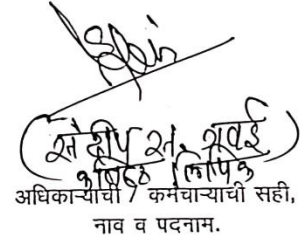 (संदीप सं. गवई)
कनिष्ठ लिपिक
अधिकाऱ्याची / कर्मचाऱ्याची सही,
नाव व पदनाम.